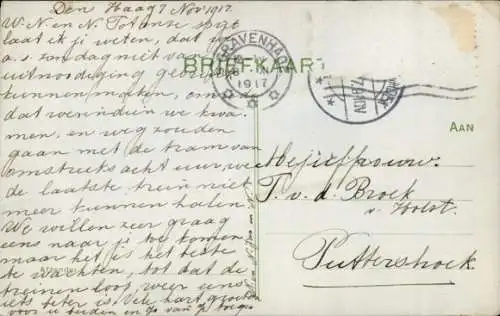 Den Haag 7 Nov 1917.
W. N. en N. Tot onze spijt
laat ik je weten, dat we
a.s. zondag niet van
uitnoodiging gebruik
kunnen maken, om
dat we indien we kwa
men, en weg zouden
gaan met de tram van
omstreeks acht uur, we
de laatste trein niet
meer kunnen halen.
We willen zeer graag
eens naar je toe komen
maar het is het beste
te wachten, tot dat de
treinen loop, weer eens
iets beter is. Vele hart groeten
voor u beiden en
'S GRAVENHAGE
1917
BRIEFKAART
7.9 NOV
AAN
Mejuffrouw
T. v. d. Broek
v. Holst.
Puttershoek